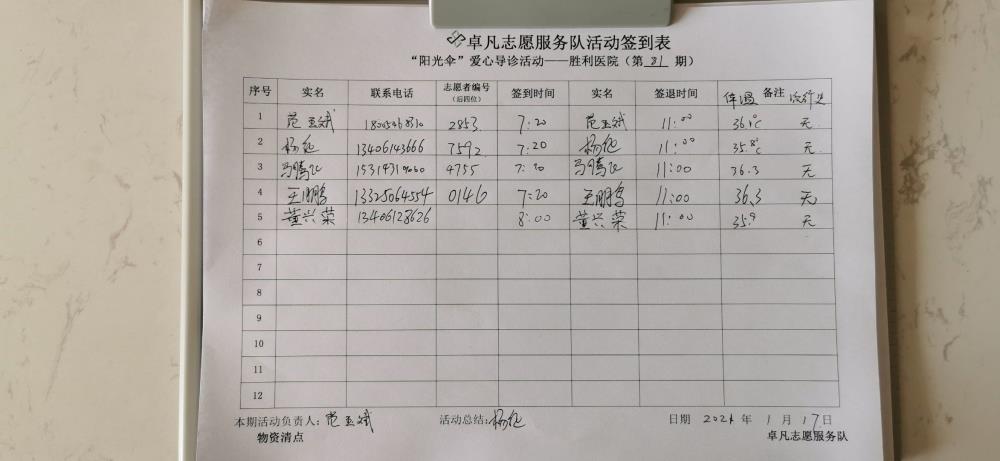 卓凡志愿服务队活动签到表
“阳光伞”爱心导诊活动——胜利医院（第 81 期）
序号 实名 联系电话 志愿者编号（后四位） 签到时间 实名 签退时间 体温 备注
1 范玉斌 2853 7:20 范玉斌 11:00 36.1℃ 无
2 杨 13406143666 7592 7:20 杨 11:00 35.8℃ 无
3 马腾飞 4755 7:20 马腾飞 11:00 36.3 无
4 王鹏 13325064554 0146 7:20 王鹏 11:00 36.3 无
5 董兴荣 13406128626 8:00 董兴荣 11:00 35.9 无
6
7
8
9
10
11
12
本期活动负责人：范玉斌 活动总结：杨 日期 2021 年 1 月 17 日
物资清点 卓凡志愿服务队